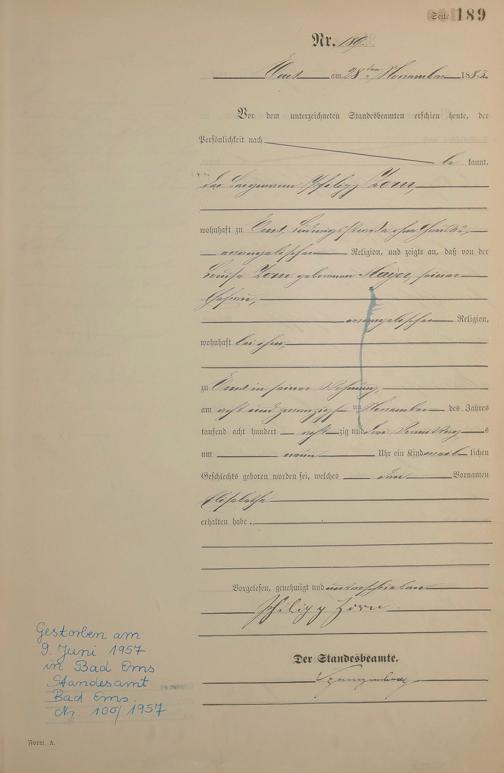 Seite 189
Nr. 189
Ems am 28ten November 188
Vor dem unterzeichneten Standesbeamten erschien heute, der
Persönlichkeit nach
be kannt,
der Bergmann Philipp Zorn,
wohnhaft zu Ems,
evangelischer Religion, und zeigte an, daß von der
Zorn geborenen Mayer, seiner
Ehefrau,
evangelischer Religion,
wohnhaft bei ihm,
zu Ems in seiner Wohnung,
am acht und zwanzigsten November des Jahres
tausend acht hundert achtzig und drei Vormittags
um neun Uhr ein Kind weiblichen
Geschlechts geboren worden sei, welches den Vornamen
Elisabethe
erhalten habe.
Vorgelesen, genehmigt und unterschrieben
Philipp Zorn
Der Standesbeamte.
Gestorben am
9. Juni 1957
in Bad Ems
Standesamt
Bad Ems
Nr. 100/1957
Form. A.